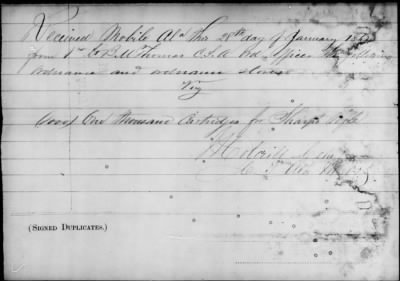 Received Mobile Ala this 28th day of January
from 1st Lt R M Thomas C.S.A Ord officer the following
ordnance and ordnance stores
Viz
(1000) One Thousand Cartridges for Sharps Rifle
(SIGNED DUPLICATES.)